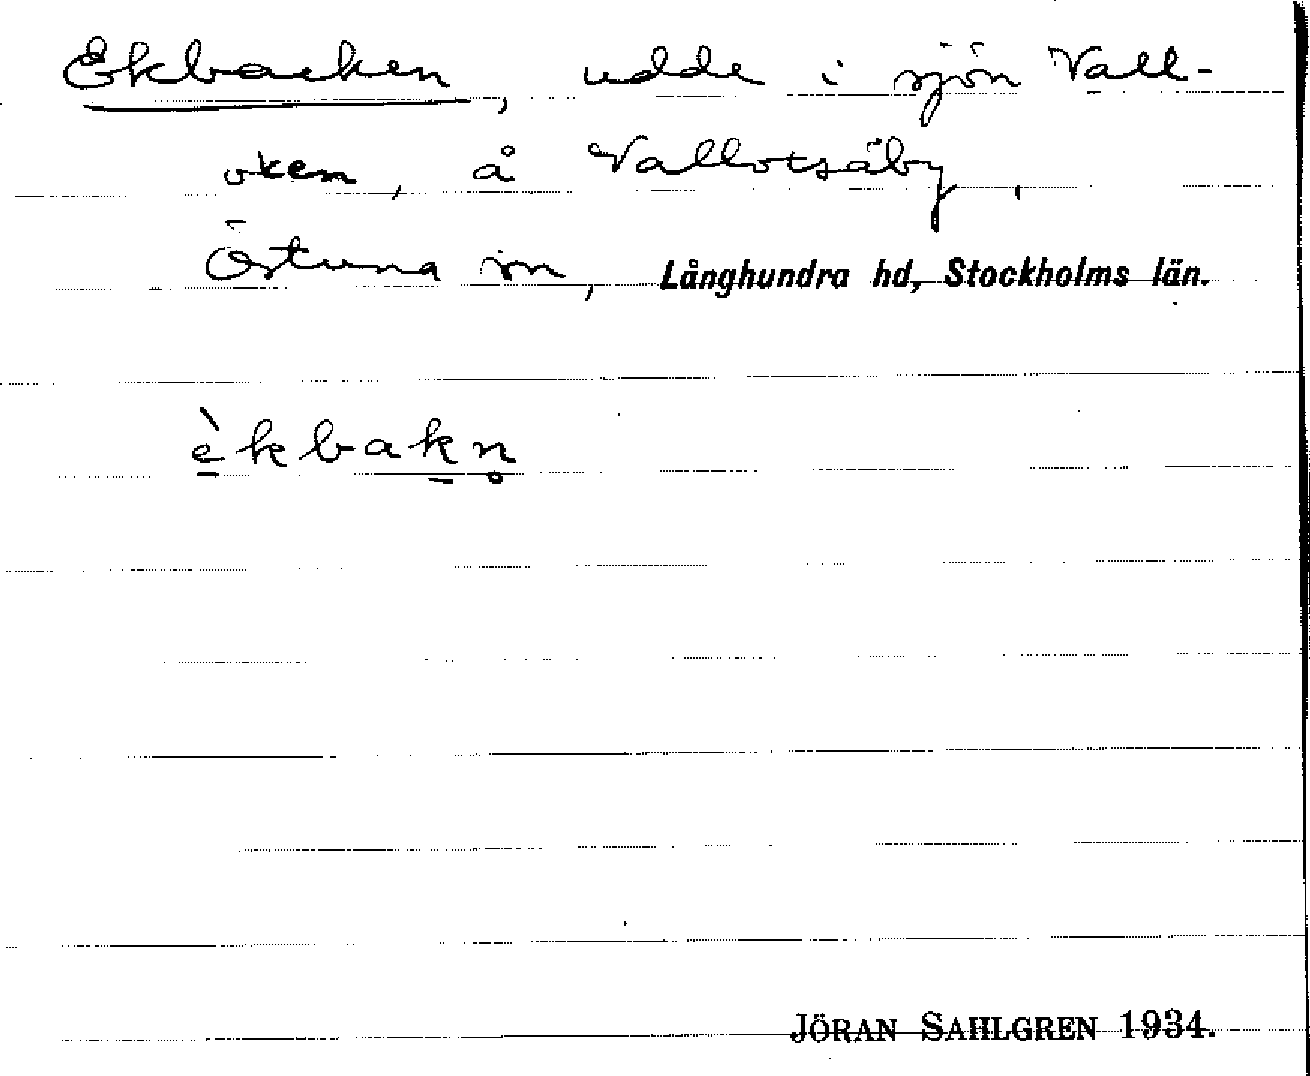 Ekbacken, udde i sjön Vall-
oxen, å Valloxsäby,
Östuna sn, Långhundra hd, Stockholms län.
èkbakn̥
JÖRAN SAHLGREN 1934.